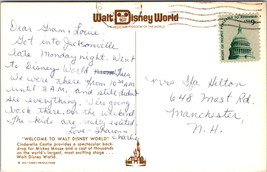 Walt Disney World
Dear Gram & Louie
Got into Jacksonville
late Monday night. Went
to Disney World then
We were there from 10 AM
until 2 AM, and still didn't
see everything. We're going
back there, on the weekend
The kids are really
Love Sharon
Charlie
Mrs Hilton
648 Mast Rd.
Manchester,
N.H.
"WELCOME TO WALT DISNEY WORLD"
Cinderella Castle provides a spectacular back-
drop for Mickey Mouse and a cast of thousands
on the world's largest, most exciting stage . . .
Walt Disney World.